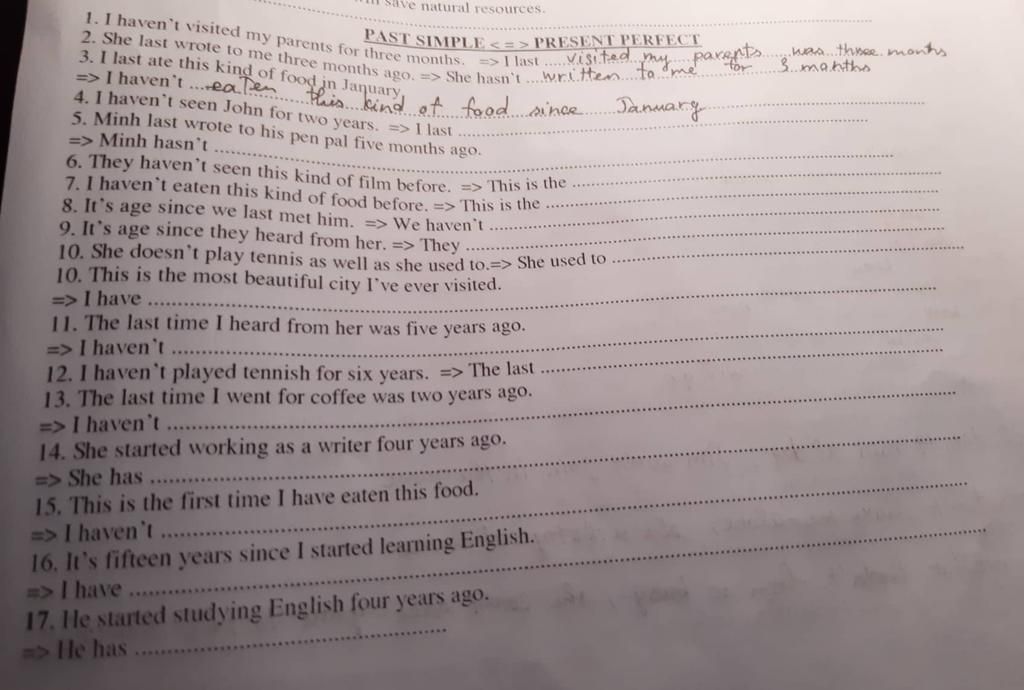 save natural resources.
PAST SIMPLE < = > PRESENT PERFECT
1. I haven't visited my parents for three months. => I last visited my parents was three months
2. She last wrote to me three months ago. => She hasn't written to me for 3 months
3. I last ate this kind of food in January.
=> I haven't eaten this kind of food since January
4. I haven't seen John for two years. => I last
5. Minh last wrote to his pen pal five months ago.
=> Minh hasn't
6. They haven't seen this kind of film before. => This is the
7. I haven't eaten this kind of food before. => This is the
8. It's age since we last met him. => We haven't
9. It's age since they heard from her. => They
10. She doesn't play tennis as well as she used to.=> She used to
10. This is the most beautiful city I've ever visited.
=> I have
11. The last time I heard from her was five years ago.
=> I haven't
12. I haven't played tennish for six years. => The last
13. The last time I went for coffee was two years ago.
=> I haven't
14. She started working as a writer four years ago.
=> She has
15. This is the first time I have eaten this food.
=> I haven't
16. It's fifteen years since I started learning English.
=> I have
17. He started studying English four years ago.
=> He has